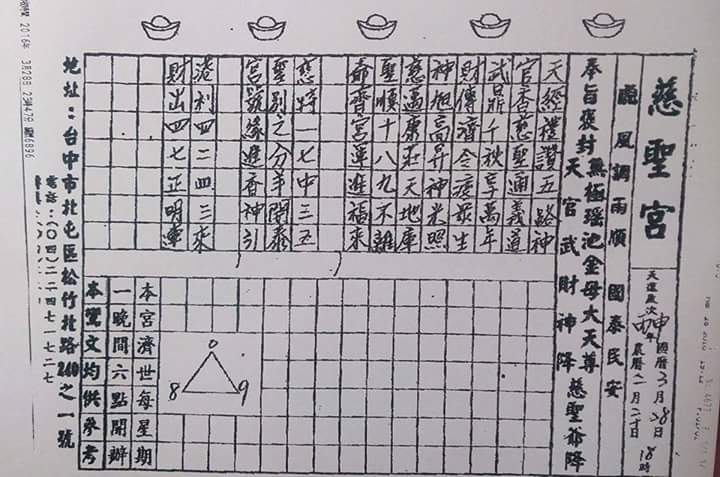 慈聖宮
天運歲次丙申年
國曆3月28日
農曆二月二十日
18時
風調雨順 國泰民安
奉旨褒封 無極瑤池金母大天尊
天官武財神降 慈聖爺降
天經禮讚五路神
官香慈聖通義道
武鼎千秋享萬年
財傳濟令渡眾生
神旭高昇神光照
慈過康莊天地庫
聖順十八九不離
爺齊宮運進福來
慈特一七中三五
聖別之分羊開泰
宮號緣進香神引
港利四二四三來
財出四七正明運
0
8 9
本宮濟世每星期
一晚間六點開辦
本鸞文均供參考
地址:台中市北屯區松竹北路240之一號
電話:(〇四)二二四七一七二七
2016年 3月28日 23時47分